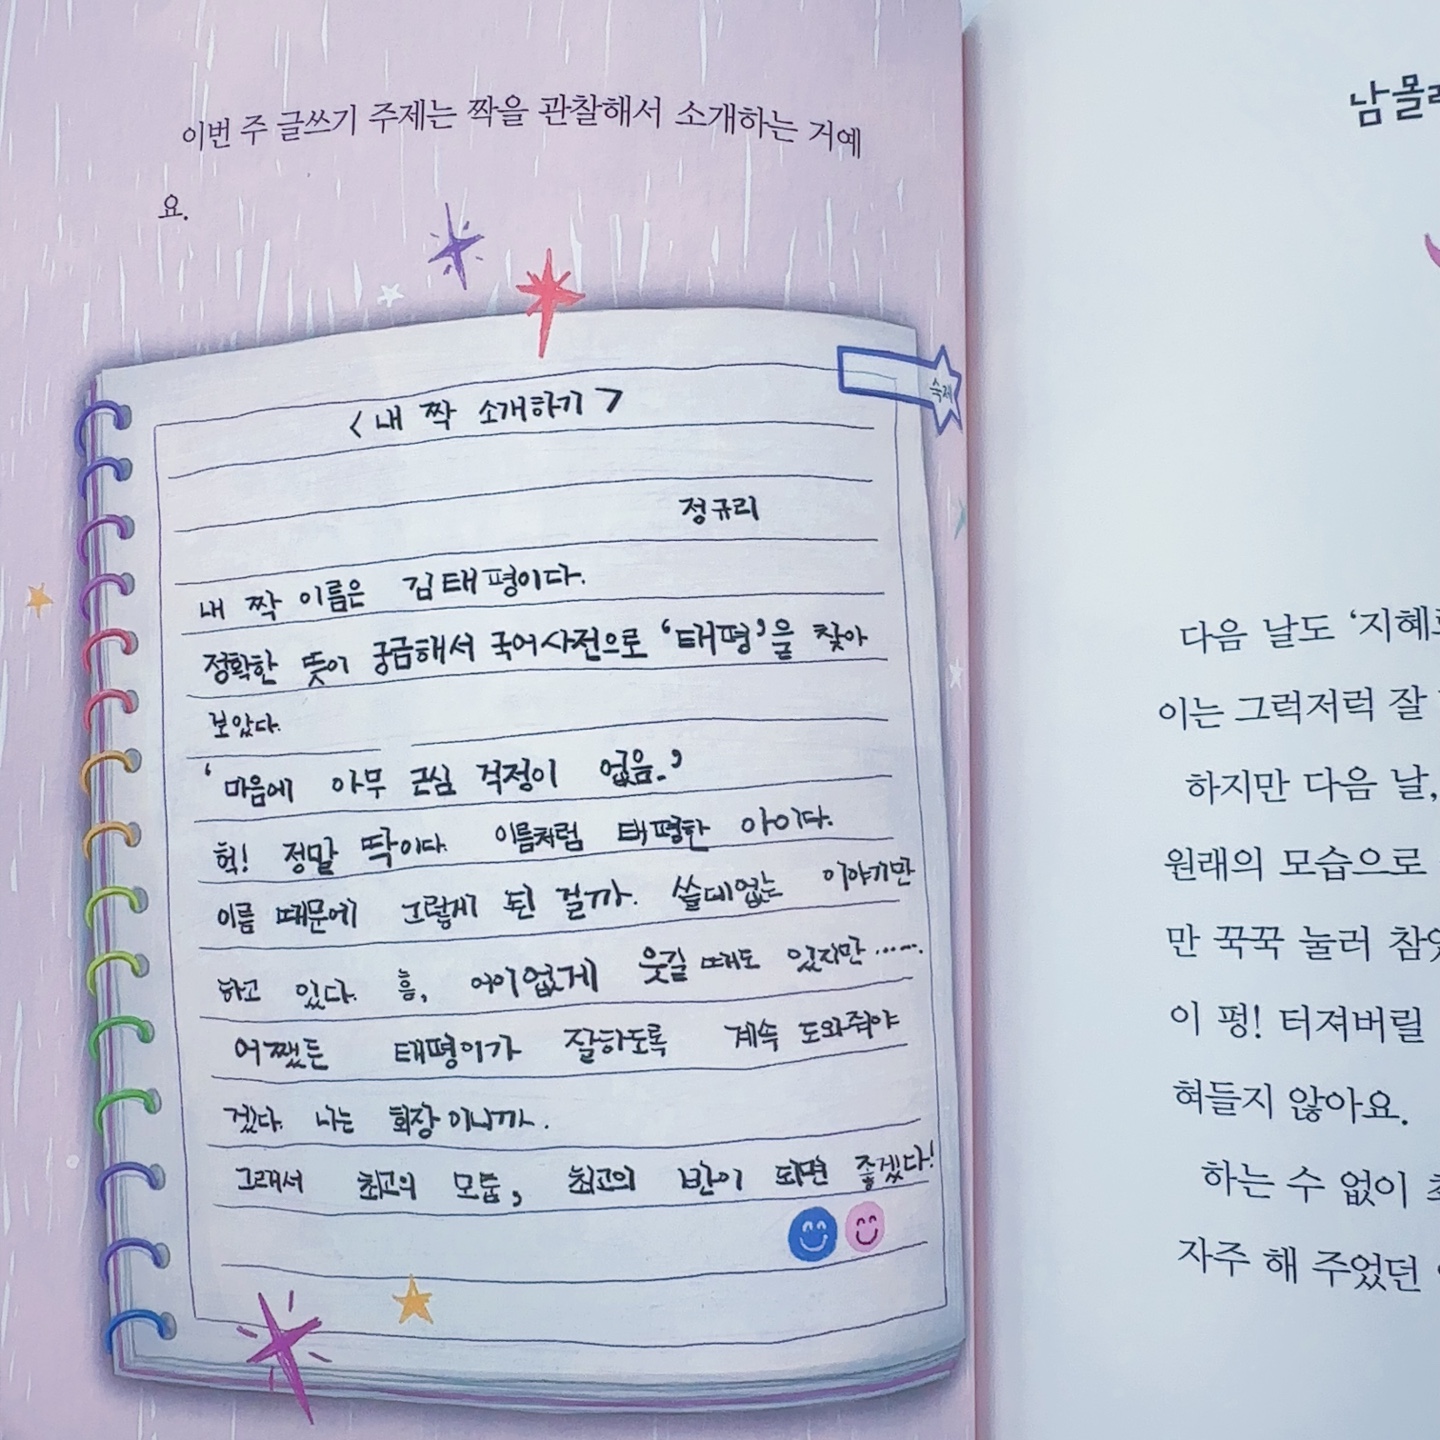 이번 주 글쓰기 주제는 짝을 관찰해서 소개하는 거예
요.
숙제
<내 짝 소개하기>
정규리
내 짝 이름은 김태평이다.
정확한 뜻이 궁금해서 국어사전으로 ‘태평’을 찾아
보았다.
‘마음에 아무 근심 걱정이 없음.’
헉! 정말 딱이다. 이름처럼 태평한 아이다.
이름 때문에 그렇게 된 걸까. 쓸데없는 이야기만
하고 있다. 흠, 어이없게 웃길 때도 있지만…….
어쨌든 태평이가 잘하도록 계속 도와줘야
겠다. 나는 회장이니까.
그래서 최고의 모둠, 최고의 반이 되면 좋겠다!
남몰래
다음 날도 ‘지혜로
이는 그럭저럭 잘
하지만 다음 날,
원래의 모습으로
만 꾹꾹 눌러 참았
이 펑! 터져버릴
혀들지 않아요.
하는 수 없이
자주 해 주었던